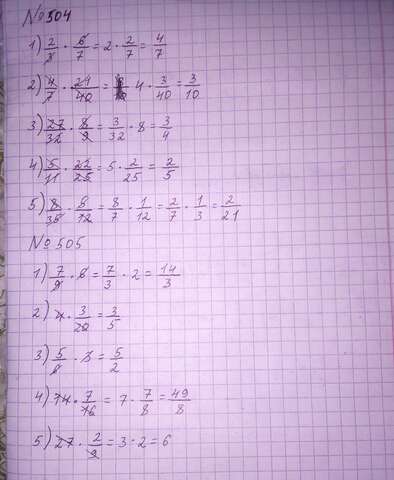 №504
1) 2/3 · 6/7 = 2 · 2/7 = 4/7
2) 4/7 · 21/40 = 4 · 3/40 = 3/10
3) 27/32 · 8/9 = 3/32 · 8 = 3/4
4) 5/11 · 22/25 = 5 · 2/25 = 2/5
5) 8/35 · 5/12 = 8/7 · 1/12 = 2/7 · 1/3 = 2/21
№505
1) 7/9 · 6 = 7/3 · 2 = 14/3
2) 4 · 3/20 = 3/5
3) 5/6 · 3 = 5/2
4) 14 · 7/16 = 7 · 7/8 = 49/8
5) 27 · 2/9 = 3 · 2 = 6